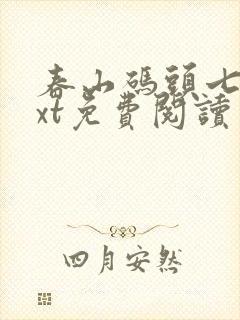 春山碼頭七
xt免費閱讀
四月安然